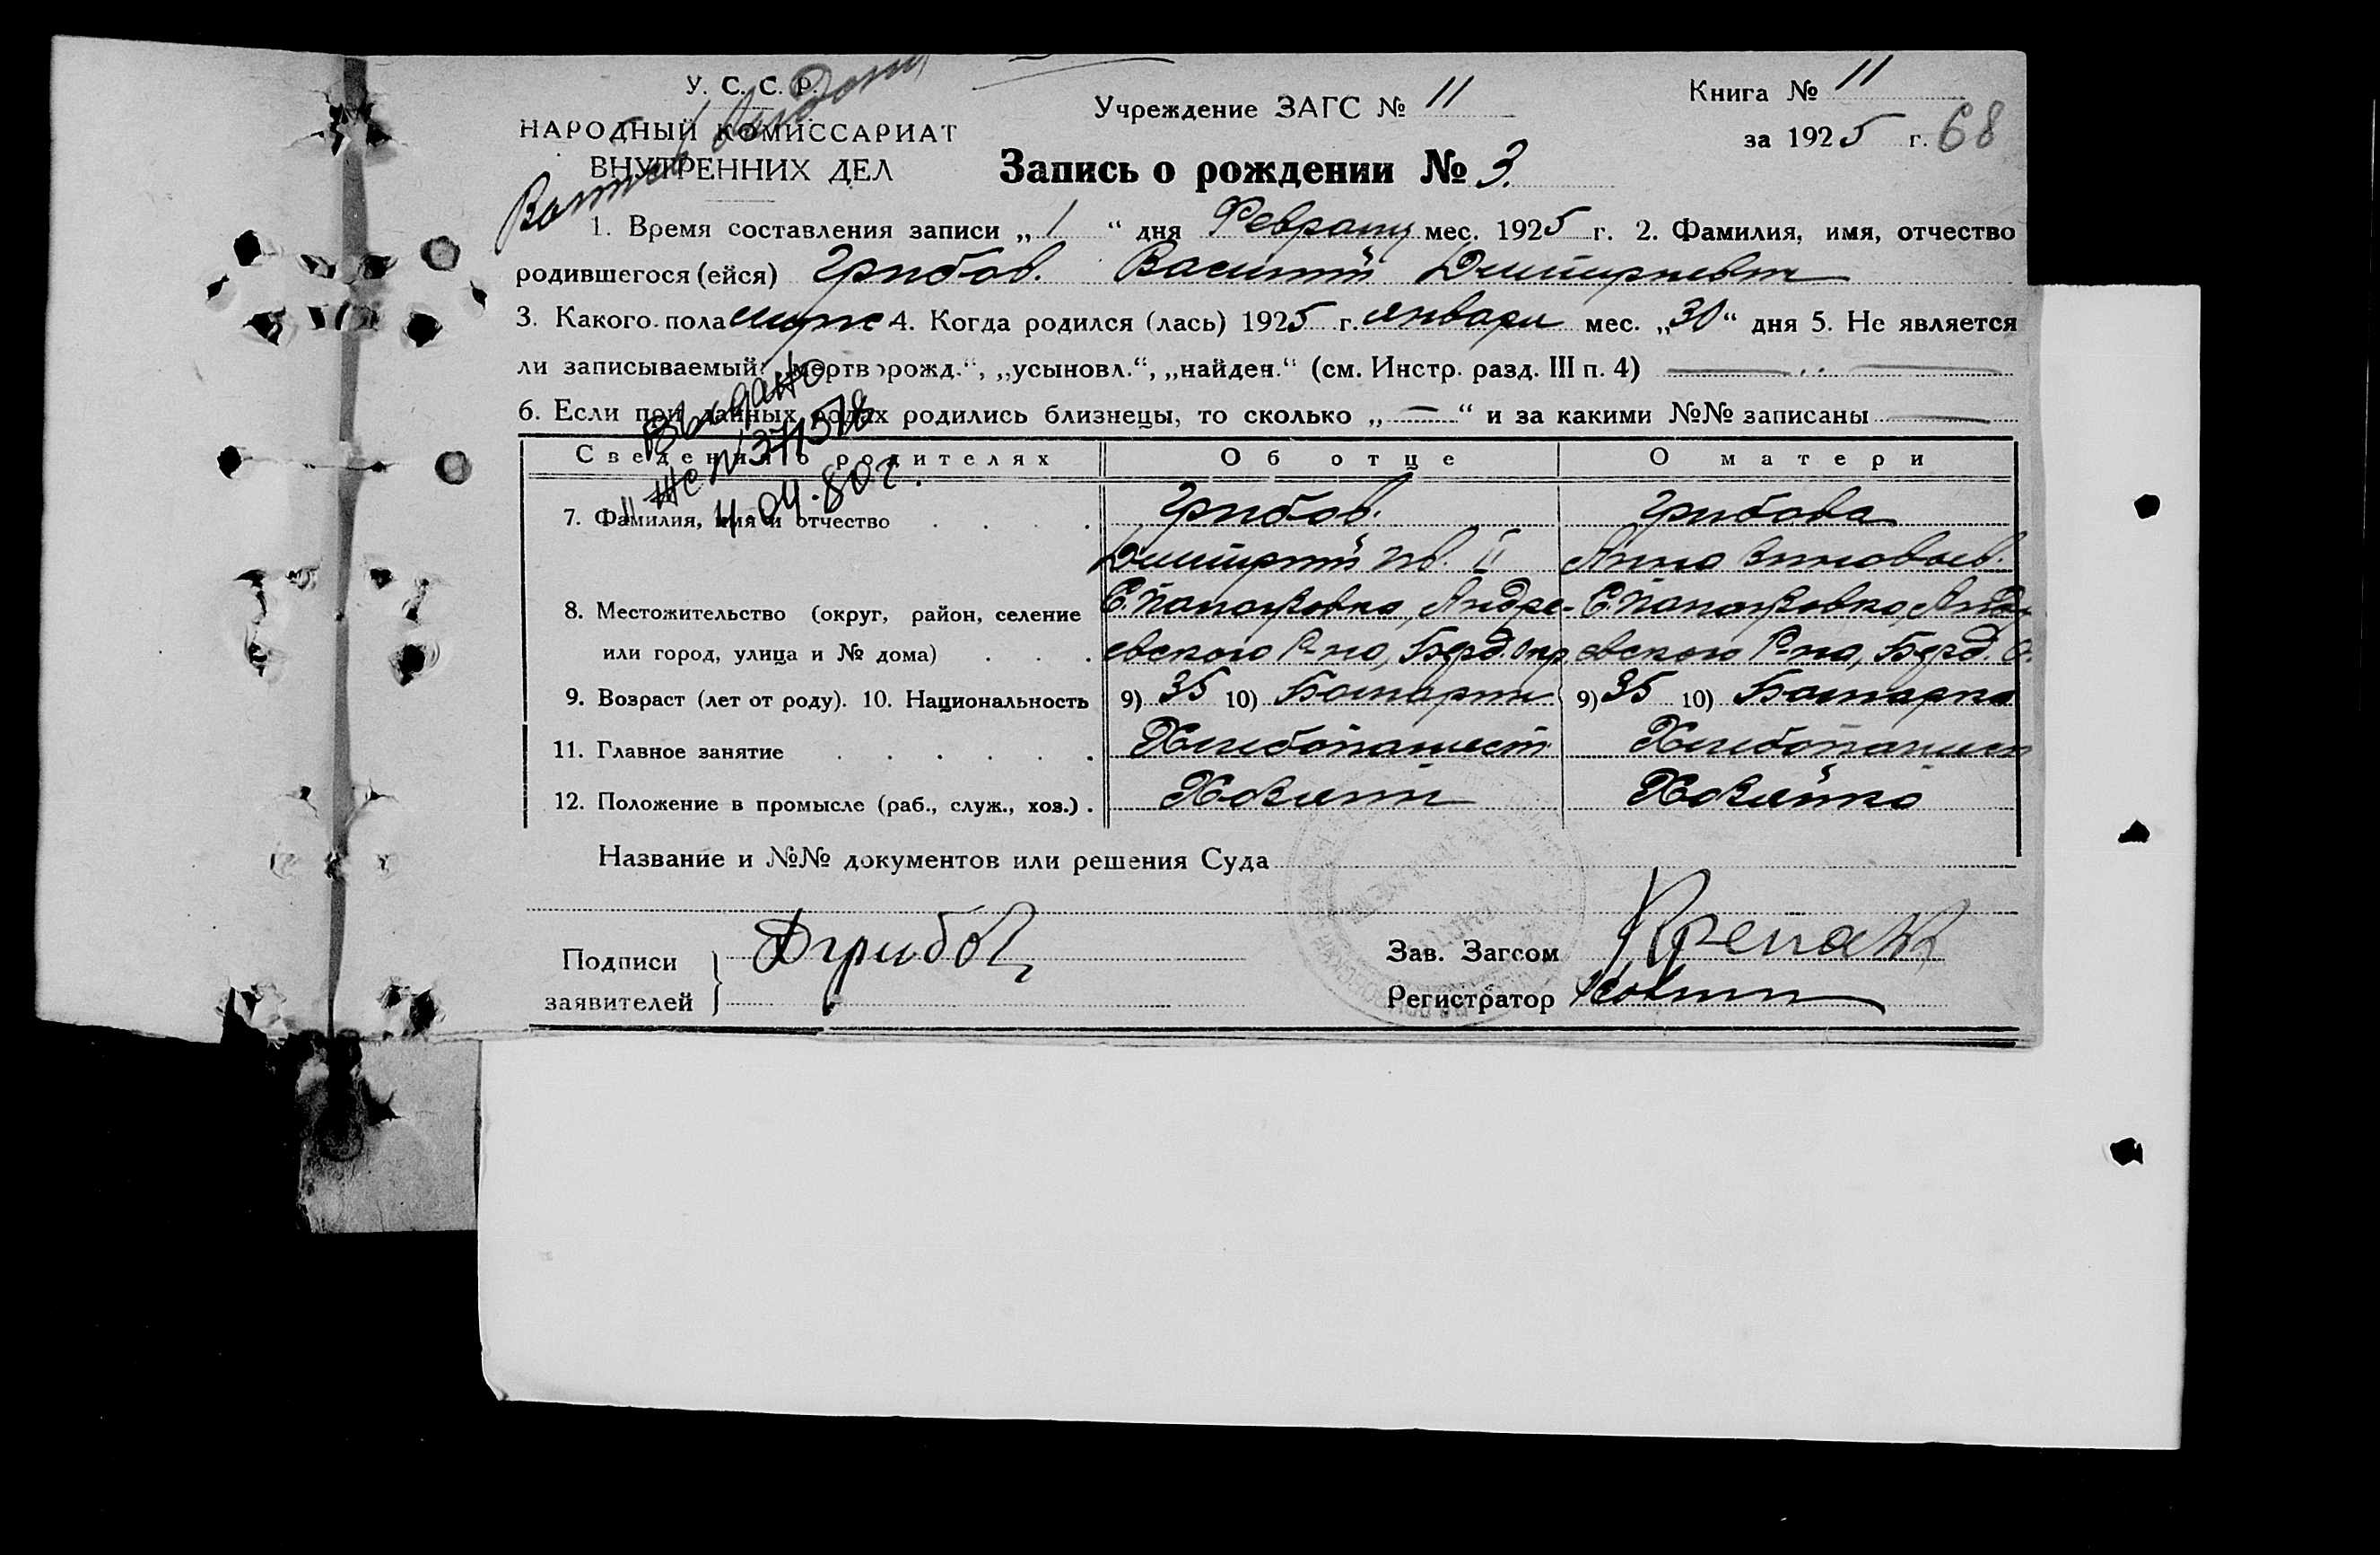 У. С. С. Р.
НАРОДНЫЙ КОМИССАРИАТ
ВНУТРЕННИХ ДЕЛ
Учреждение ЗАГС № 11
Книга № 11
за 1925 г. 68
Запись о рождении № 3.
1. Время составления записи „1“ дня Февраля мес. 1925 г. 2. Фамилия, имя, отчество
родившегося (ейся) Грибов. Василий Дмитриевич
3. Какого пола мужс 4. Когда родился (лась) 1925 г. января мес. „30“ дня 5. Не является
ли записываемый: „мертворожд.“, „усыновл.“, „найден.“ (см. Инстр. разд. III п. 4) —
6. Если при данных родах родились близнецы, то сколько „—“ и за какими №№ записаны —
Выдано
ЖС № 371578
4.04.80 г.
Сведения о родителях Об отце О матери
7. Фамилия, имя и отчество . . . . Грибов. Грибова
Дмитрий Ив. II Анна Зиновьев.
8. Местожительство (округ, район, селение С. , Андре- С. ,
или город, улица и № дома) . . . евского Р-на, Берд. Окр. евского Р-на, Берд. О.
9. Возраст (лет от роду). 10. Национальность 9) 35 10) Болгарин 9) 35 10) Болгарка
11. Главное занятие . . . . . . Хлебопашест Хлебопашест
12. Положение в промысле (раб., служ., хоз.) . Хозяин Хозяйка
Название и №№ документов или решения Суда
Подписи
заявителей } ДГрибов
Зав. Загсом
Регистратор